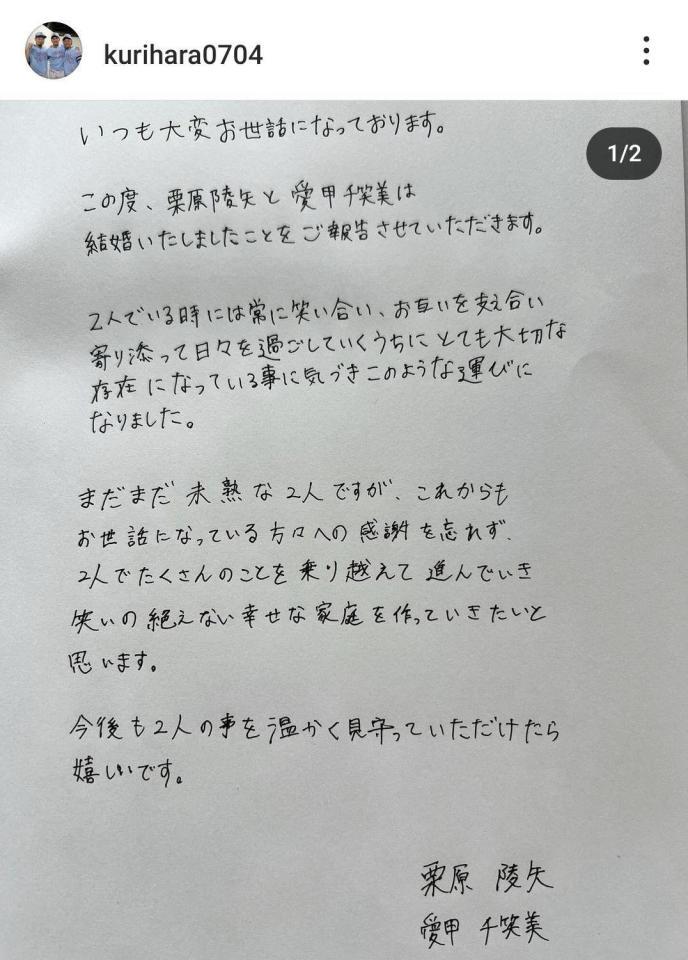 kurihara0704
1/2
いつも大変お世話になっております。
この度、栗原陵矢と愛甲千笑美は
結婚いたしましたことをご報告させていただきます。
2人でいる時には常に笑い合い、お互いを支え合い
寄り添って日々を過ごしていくうちにとても大切な
存在になっている事に気づきこのような運びに
なりました。
まだまだ未熟な2人ですが、これからも
お世話になっている方々への感謝を忘れず、
2人でたくさんのことを乗り越えて進んでいき
笑いの絶えない幸せな家庭を作っていきたいと
思います。
今後も2人の事を温かく見守っていただけたら
嬉しいです。
栗原 陵矢
愛甲 千笑美